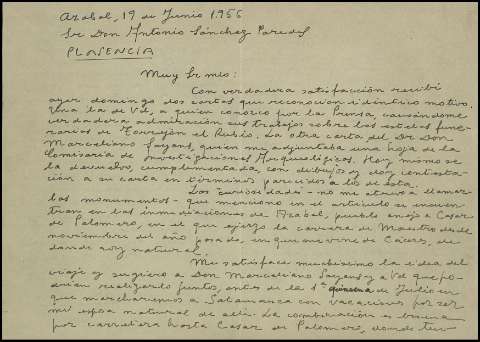 Azabal, 19 de Junio 1955
Sr Don Antonio Sánchez Paredes
PLASENCIA
Muy Sr mio:
Con verdadera satisfacción recibí
ayer domingo dos cartas que reconocían idéntico motivo.
Una la de Vd, a quien conozco por la Prensa, causándome
verdadera admiración sus trabajos sobre las estelas fune-
rarias de Torrejón el Rubio. La otra carta del Dr Don
Marceliano Sayans, quien me adjuntaba una hoja de la
Comisaría de Investigaciones Arqueológicas. Hoy mismo se
la devuelvo, cumplimentada, con dibujos y doy contesta-
ción a su carta en términos parecidos a los de ésta.
Las "curiosidades" - no me atrevo a llamar-
las monumentos - que menciono en el artículo se encuen-
tran en las inmediaciones de Azabal, pueblo anejo a Casar
de Palomero, en el que ejerzo la carrera de Maestro desde
noviembre del año pasado, en que me vine de Cáceres, de
donde soy natural.
Me satisface muchísimo la idea del
viaje y sugiero a Don Marceliano Sayans y a Vd que po-
drían realizarlo juntos, antes de la 1ª quincena de Julio en
que marcharemos a Salamanca con vacaciones por ser
mi esposa natural de allí. La combinación es buena
por carretera hasta Casar de Palomero, donde ten-